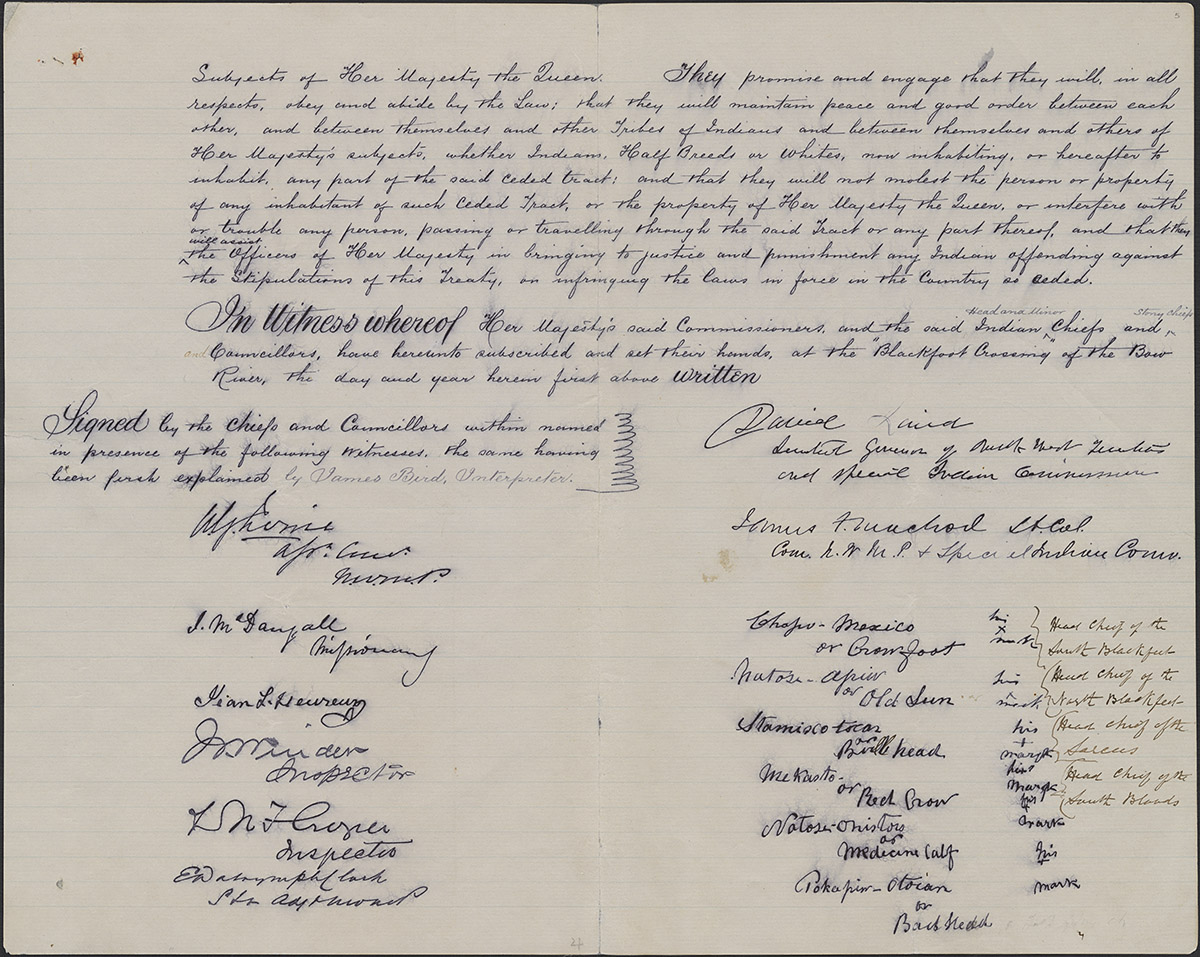 5
Subjects of Her Majesty the Queen. They promise and engage that they will, in all
respects, obey and abide by the Law; that they will maintain peace and good order between each
other, and between themselves and other Tribes of Indians and between themselves and others of
Her Majesty's subjects, whether Indians, Half Breeds or Whites, now inhabiting, or hereafter to
inhabit, any part of the said ceded tract; and that they will not molest the person or property
of any inhabitant of such Ceded Tract, or the property of Her Majesty the Queen, or interfere with
or trouble any person, passing or travelling through the said Tract or any part thereof, and that they
will assist
the Officers of Her Majesty in bringing to justice and punishment any Indian offending against
the Stipulations of this Treaty, or infringing the Laws in force in the Country so ceded.
Head and Minor Stony Chiefs
In Witness whereof Her Majesty's said Commissioners, and the said Indian Chiefs and
and Councillors, have hereunto subscribed and set their hands, at the "Blackfoot Crossing" of the Bow
River, the day and year herein first above written
Signed by the Chiefs and Councillors within named
in presence of the following Witnesses, the same having
been first explained by James Bird, Interpreter.
A.G. Irvine
Asst. Com.
N.W.M.P.
J. McDougall
Missionary
Jean L'Heureux
W. Winder
Inspector
L N F Crozier
Inspector
E Dalrymple Clark
Adjt N.W.M.P
David Laird
Lieutenant Governor of North West Territories
and Special Indian Commissioner
James F. Macleod Lt. Col.
Com. N.W.M.P. & Special Indian Comr.
Chapo-Mexico his
or Crowfoot x mark
Head Chief of the
South Blackfeet
Natose-apiw his
or Old Sun x mark
Head Chief of the
North Blackfeet
Stamiscotocar his
or Bull head x mark
Head Chief of the
Sarcees
Mekasto- his
or Red Crow mark
Head Chief of the
South Bloods
Natose-Onistors his
or mark
Medicine Calf
Pokapiw-Otoian his
or mark
Bad Head
24